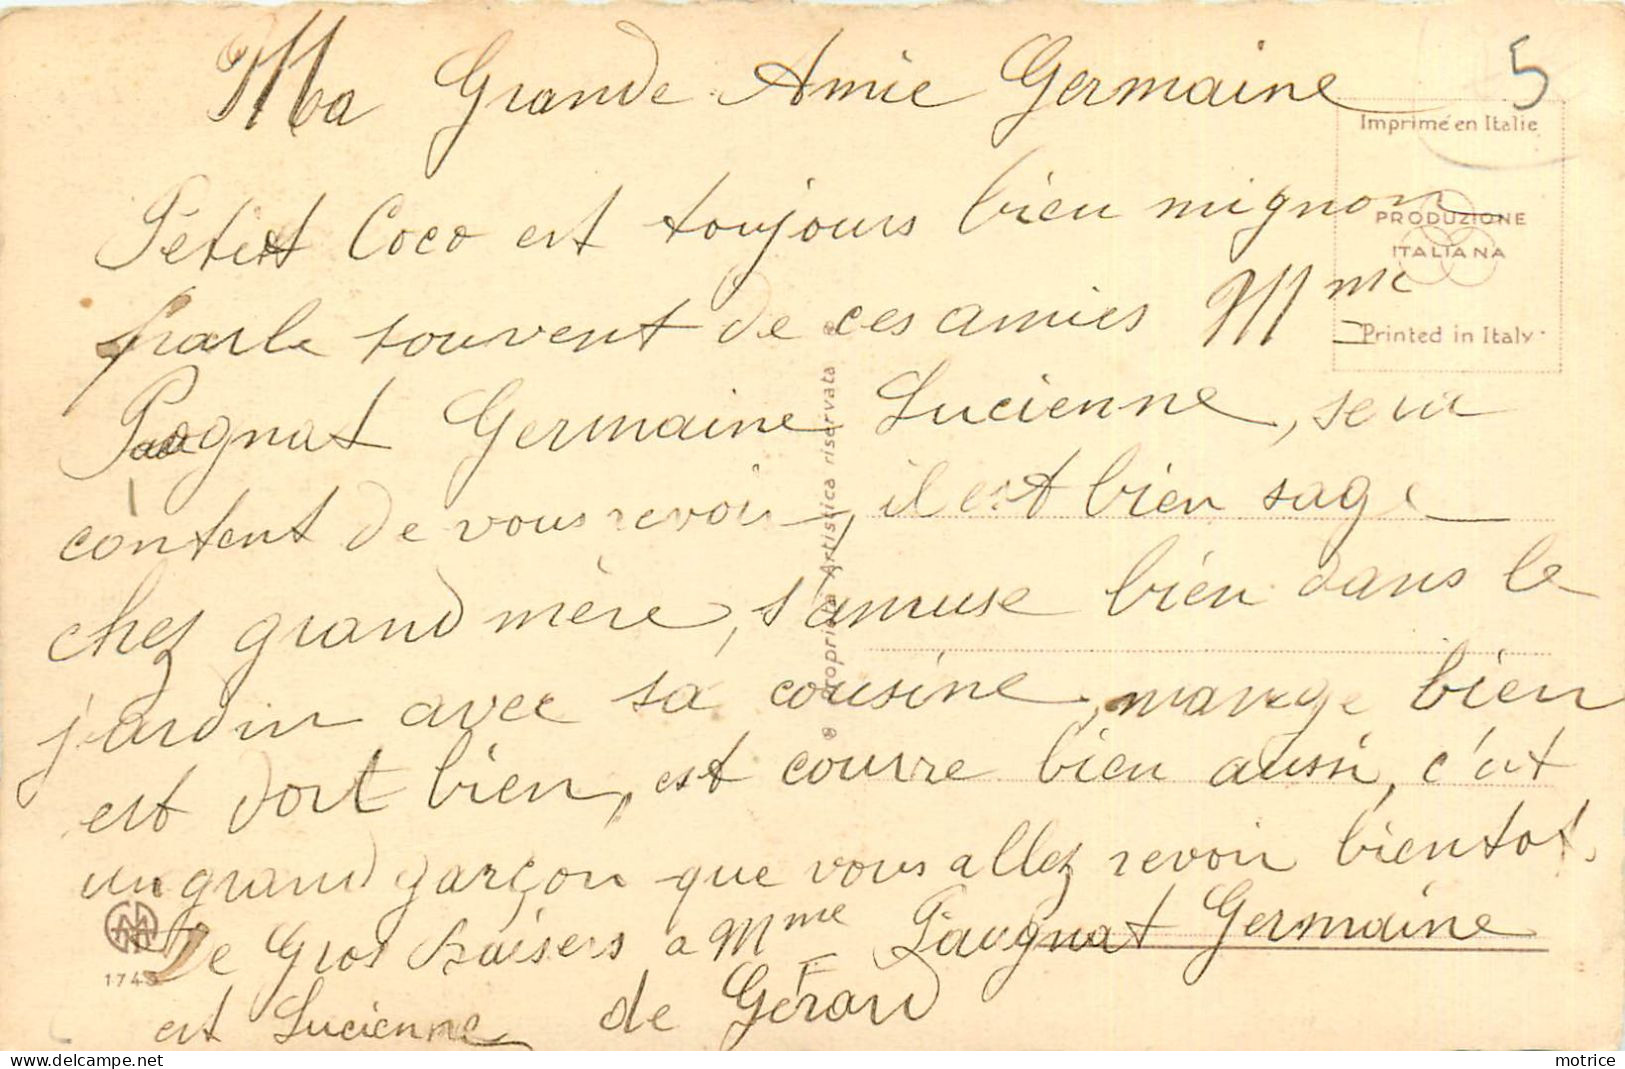 Ma Grande Amie Germaine
5
Imprimé en Italie
Pétit Coco est toujours bien mignon
PRODUZIONE
ITALIANA
parle souvent de ces amies Mme
Printed in Italy
Paugnat Germaine Lucienne, sera
content de vous revoir, il est bien sage
chez grand mère, s'amuse bien dans le
jardin avec sa cousine, mange bien
est dort bien, est courre bien aussi, c'est
un grand garçon que vous allez revoir bientot.
De Gros Baisers a Mme Paugnat Germaine
est Lucienne de Gérard
Proprietà Artistica riservata
174
delcampe.net
motrice